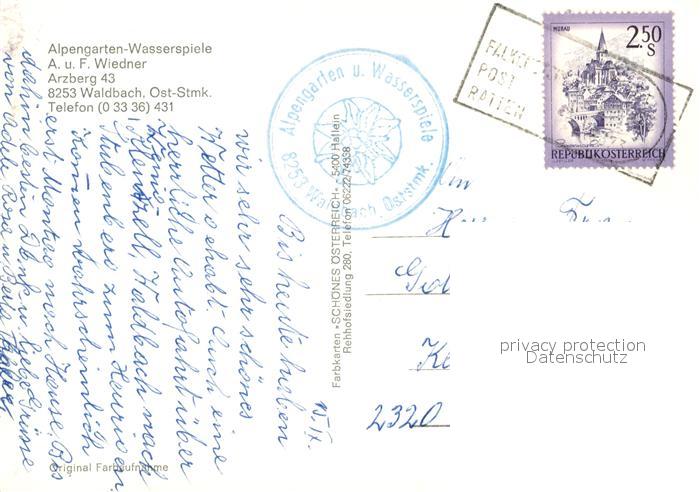 Alpengarten-Wasserspiele
A. u. F. Wiedner
Arzberg 43
8253 Waldbach, Ost-Stmk.
Telefon (0 33 36) 431
Alpengarten u. Wasserspiele
8253 Waldbach, Oststmk.
FALKEN
POST
RATTEN
MURAU
2.50
S
REPUBLIK ÖSTERREICH
Farbkarten »SCHÖNES ÖSTERREICH« 5400 Hallein
Rehhofsiedlung 280, Telefon 06222/74338
15. IX.
Bis heute haben
wir sehr sehr schönes
Wetter gehabt. Auch eine
herrliche Autofahrt über
Waldbach nach
Stubenberg zum Heurigen.
Komen wahrscheinlich
erst Montag nach Hause. Bis
dahin besten Dank u. liebe Grüsse
von
2320
Original Farbaufnahme
privacy protection
Datenschutz